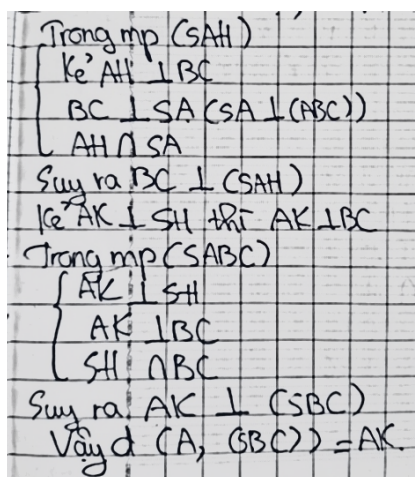 Trong mp (SAH)
Kẻ AH ⊥ BC
BC ⊥ SA (SA ⊥ (ABC))
AH ∩ SA
Suy ra BC ⊥ (SAH)
Kẻ AK ⊥ SH thì AK ⊥ BC
Trong mp (SABC)
AK ⊥ SH
AK ⊥ BC
SH ∩ BC
Suy ra AK ⊥ (SBC)
Vậy d (A, (SBC)) = AK.